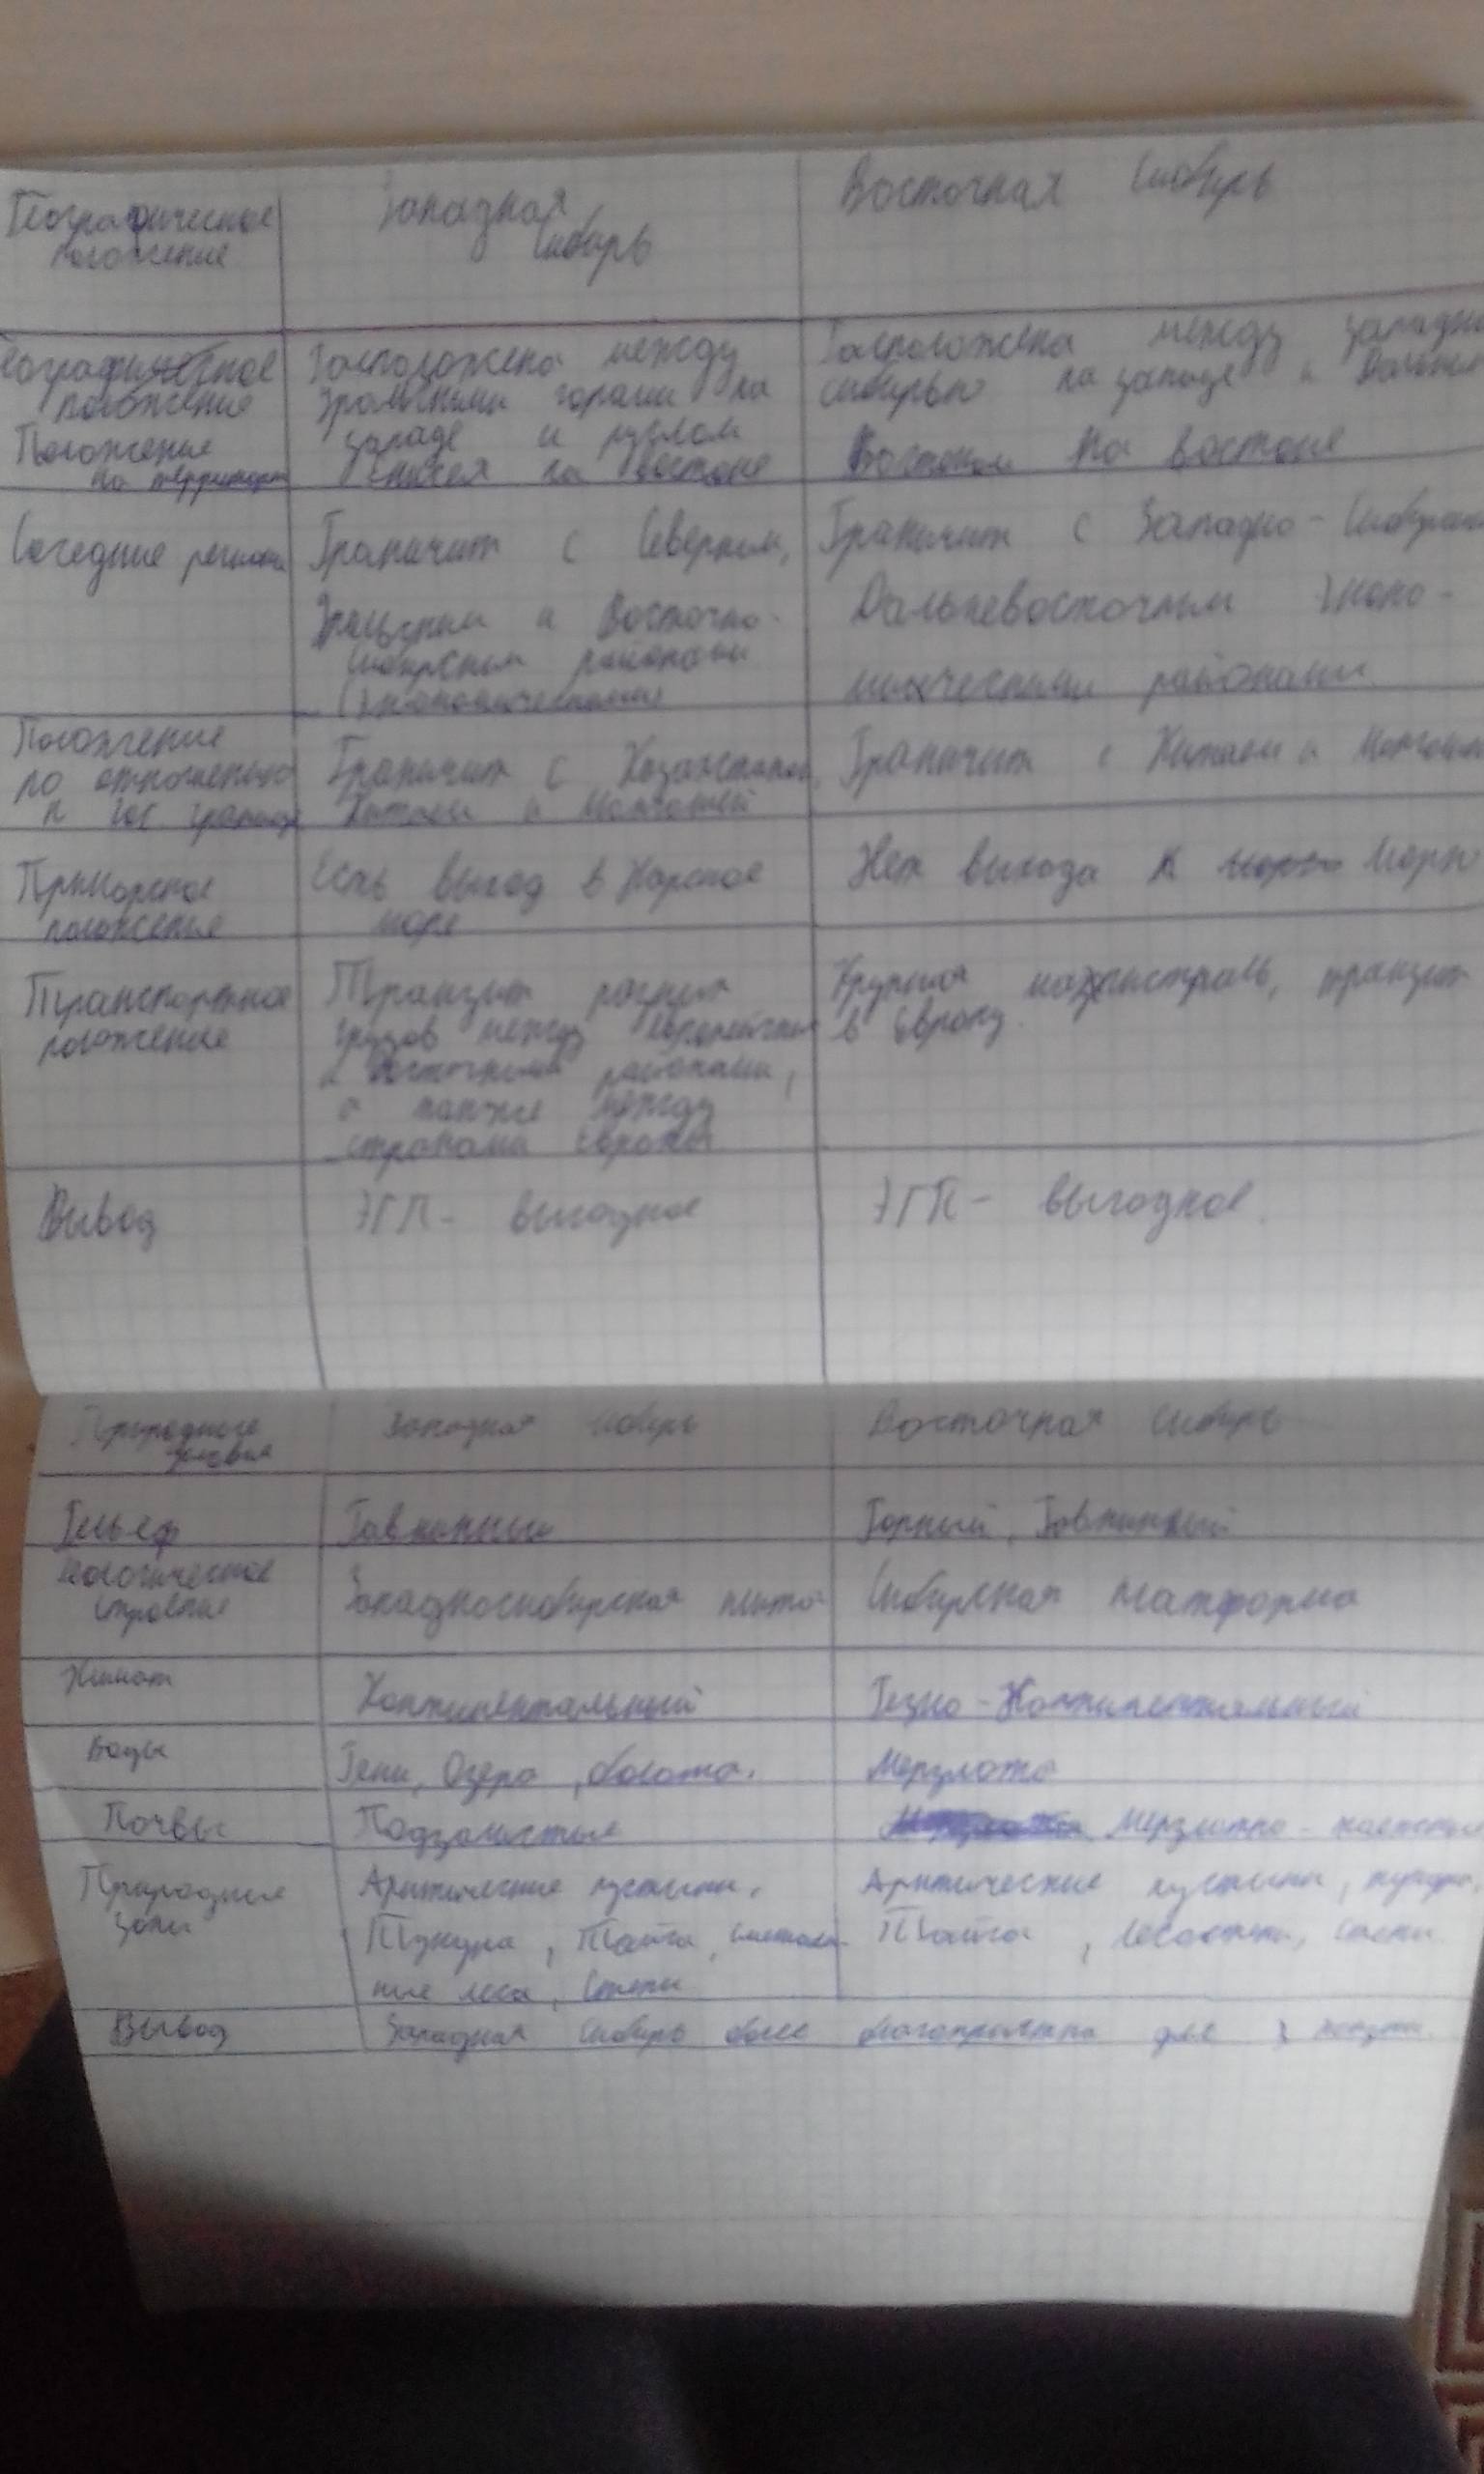 Географическое положение
Западная Сибирь
Восточная Сибирь
Географическое положение
Положение на территории
Расположена между
Уральскими горами на
западе и руслом
Енисея на востоке
Расположена между западной
сибирью на западе и Дальним
Востоком на востоке
Соседние регионы
Граничит с Северным,
Уральским и Восточно-
Сибирским районами
(экономическими)
Граничит с Западно-Сибирским
Дальневосточным эконо-
мическими районами
Положение
по отношению
к гос границе
Граничит с Казахстаном,
Китаем и Монголией
Граничит с Китаем и Монголией
Приморское
положение
Есть выход в Карское
море
Нет выхода к морю Морю
Транспортное
положение
Транзит
грузов между европейскими
и восточными районами,
а также между
странами Европы
Крупная магистраль, транзит
в Европу.
Вывод
ЭГП - выгодное
ЭГП - выгодное.
Природные
условия
Западная Сибирь
Восточная Сибирь
Рельеф
Равнинный
Горный, Равнинный
Геологическое
строение
Западносибирская плита
Сибирская платформа
Климат
Континентальный
Резко-Континентальный
Воды
Реки, Озера, болота.
Мерзлота
Почвы
Подзолистые
Мерзлотно-таежные
Природные
зоны
Арктические пустыни,
Тундра, Тайга,
леса, Степи
Арктические пустыни, тундра,
Тайга, Лесостепи, степи
Вывод
Западная Сибирь более благоприятна для